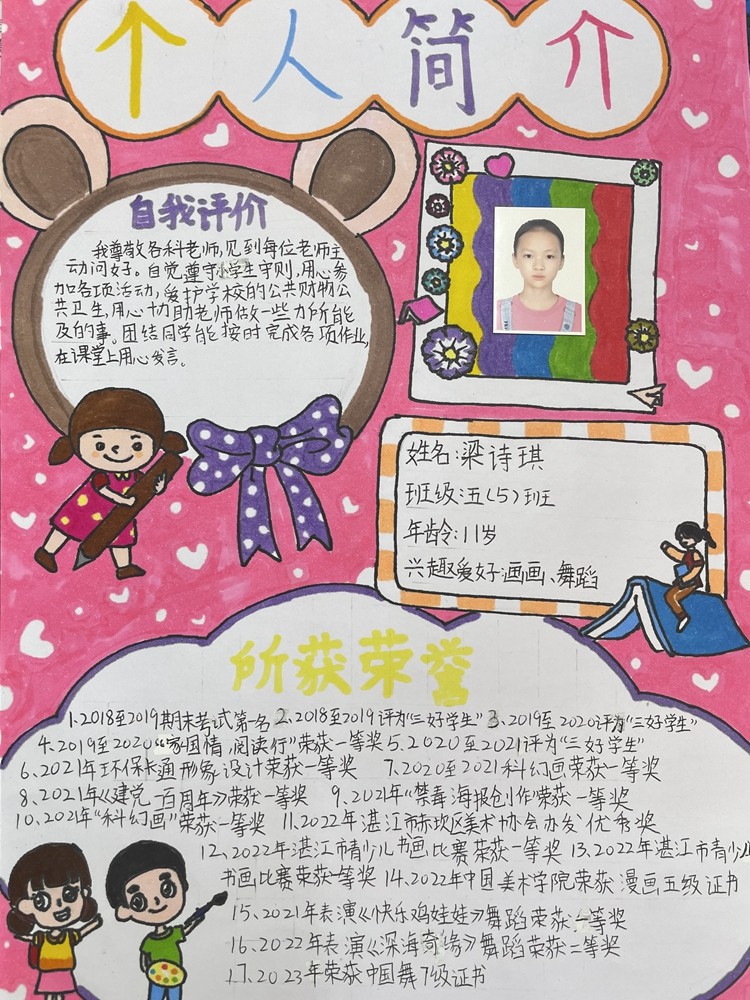 个人简介
自我评价
我尊敬各科老师,见到每位老师主
动问好。自觉遵守小学生守则,用心参
加各项活动,爱护学校的公共财物公
共卫生,用心协助老师做一些力所能
及的事。团结同学能按时完成各项作业,
在课堂上用心发言。
姓名:梁诗琪
班级:五(5)班
年龄:11岁
兴趣爱好:画画、舞蹈
所获荣誉
1.2018至2019期末考试第一名 2.2018至2019评为“三好学生” 3.2019至2020评为“三好学生”
4.2019至2020“家国情,阅读行”荣获一等奖 5.2020至2021评为“三好学生”
6.2021年环保卡通形象设计荣获一等奖 7.2020至2021科幻画荣获一等奖
8.2021年《建党一百周年》荣获一等奖 9.2021年“禁毒海报创作”荣获一等奖
10.2021年“科幻画”荣获一等奖 11.2022年湛江市赤坎区美术协会办发优秀奖
12、2022年湛江市青少儿书画比赛荣获一等奖 13、2022年湛江市青少儿
书画比赛荣获一等奖 14、2022年中国美术学院荣获漫画五级证书
15、2021年表演《快乐鸡娃娃》舞蹈荣获一等奖
16、2022年表演《深海奇缘》舞蹈荣获二等奖
17、2023年荣获中国舞7级证书